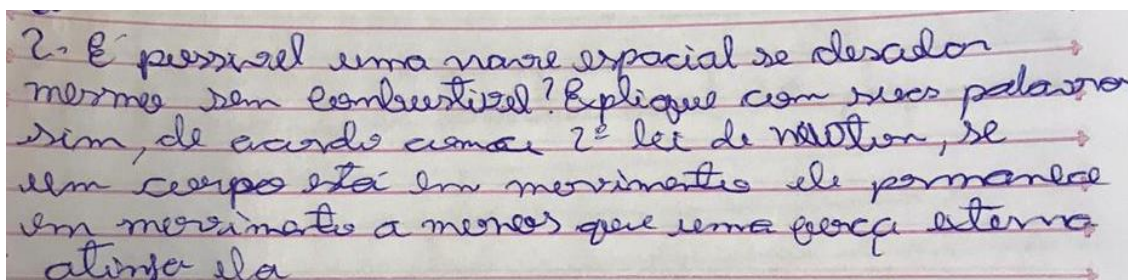 2. É possivel uma nave espacial se desador
mesmo sem combustivel? Explique com suas palavra
sim, de acordo com a 2ª lei de newton, se
um corpo está em movimento ele permanece
em movimento a menos que uma força externa
atinja ela